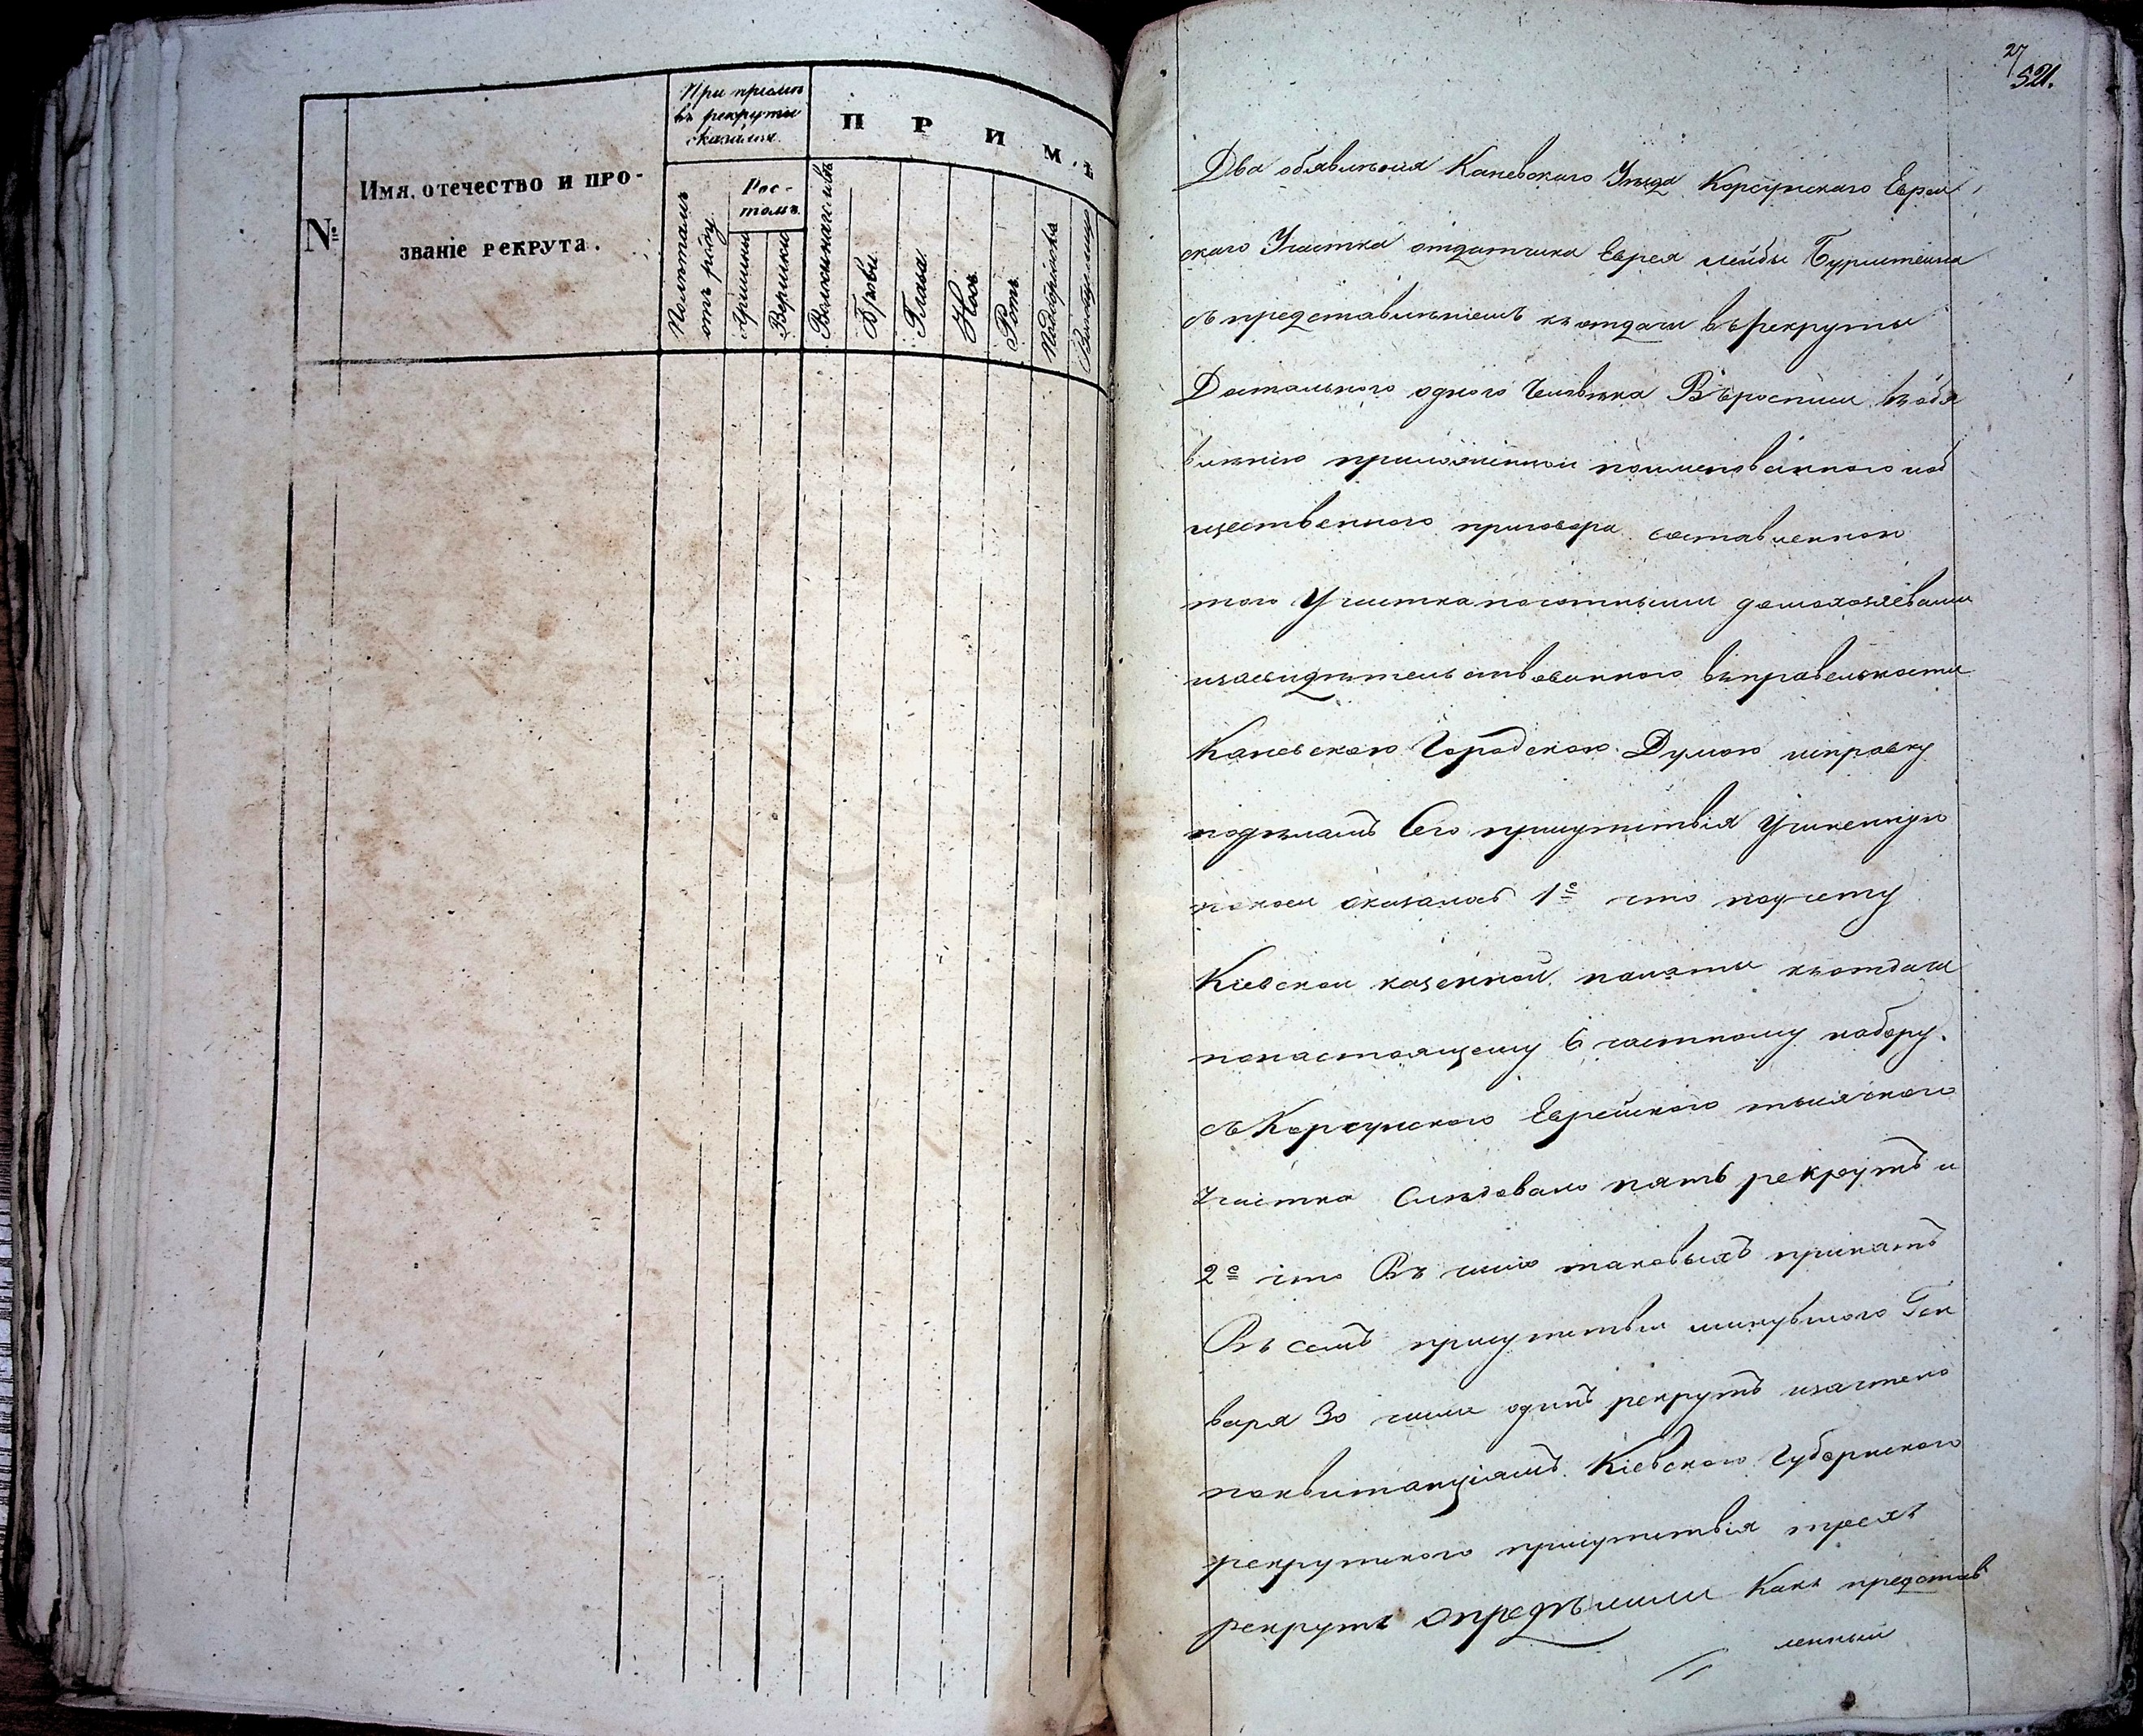 №
Имя, отечество и про-
званіе рекрута.
При пріемѣ
въ рекруты
оказался
Полѣтамъ
отъ роду
Рос-
томъ
Аршины
Вершки
П Р И М Ѣ
Брови
Глаза
Носъ
Ротъ
Подбородокъ
27
521.
Два обявленія Каневскаго Уѣзда Корсунскаго Еврей
скаго Участка отдатчика Еврея Лейбы Бурштейна
съ представленіемъ къ отдачи въ рекруты
Достального одного Человѣка Въросписи кобя
вленію приложенной поименованного изоб
щественного приговора составленного
того Участка посотными домохозяевами
изасвидѣтельствованного въправельности
Каневскою Городскою Думою исправку
подѣламъ Сего присутствія Учиненную
оказалось 1е что поучету
Кіевской казенной палаты къотдачи
понастоящему 6 частному набору.
съ Корсунского Еврейского тысячного
Участка Слѣдовало пять рекрутъ и
2е что Въ число таковыхъ принятъ
Въ семъ присутствіи минувшого Ген
варя 30 числа одинъ рекрутъ изачтено
поквитанціямъ Кіевского Губернского
рекрутского присутствія трехъ
рекрутъ опредѣлили Какъ представ
ленный